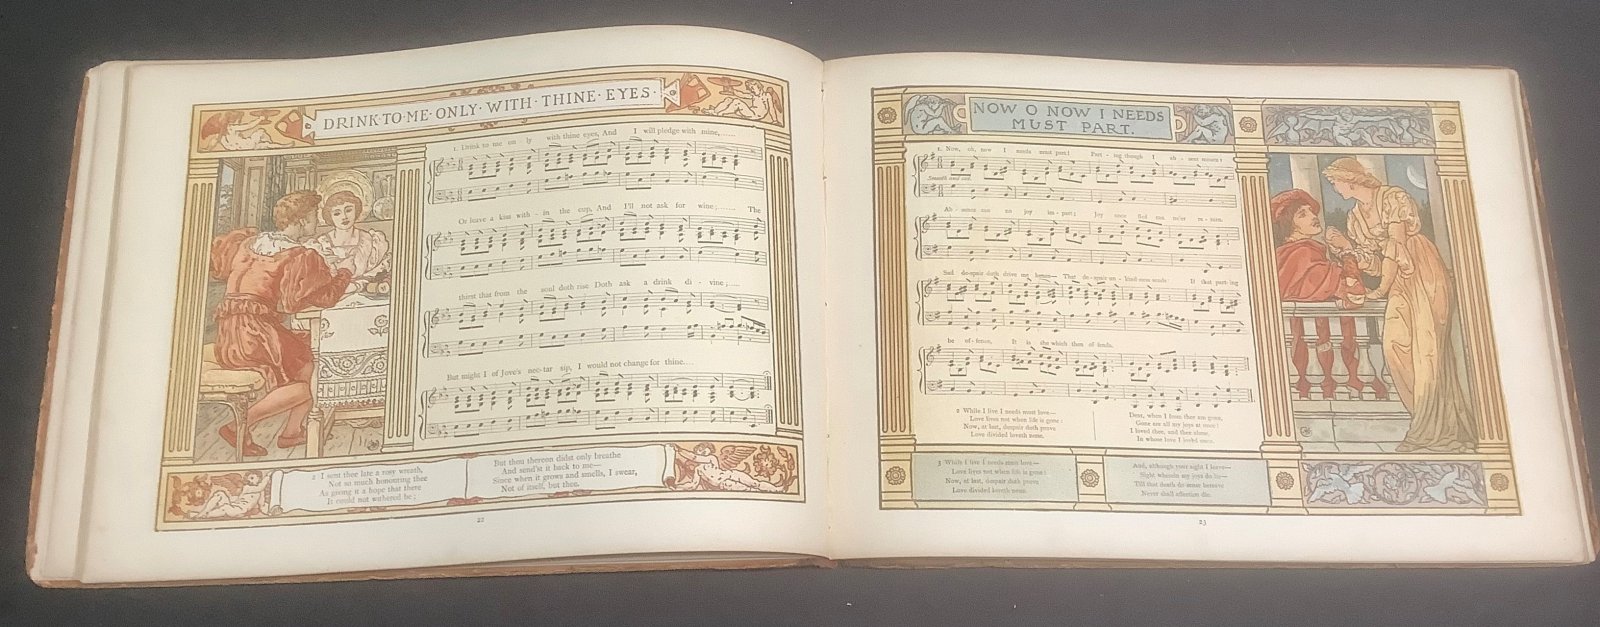 DRINK·TO·ME·ONLY·WITH·THINE·EYES·
1. Drink to me on ly with thine eyes, And I will pledge with mine,......
Or leave a kiss with - in the cup, And I'll not ask for wine;...... The
thirst that from the soul doth rise Doth ask a drink di - vine;.....
But might I of Jove's nec-tar sip, I would not change for thine....
2 I sent thee late a rosy wreath,
Not so much honouring thee
As giving it a hope that there
It could not withered be;
But thou thereon didst only breathe
And send'st it back to me—
Since when it grows and smells, I swear,
Not of itself, but thee.
22
NOW O NOW I NEEDS
MUST PART.
1. Now, oh, now I needs must part! Part - ing though I ab - sent mourn!
Smooth and
Ab - sence can no joy im - part; Joy once fled can ne'er re - turn.
Sad de-spair doth drive me hence— That de-spair un - kind-ness sends: If that part-ing
be of-fence, It is she which then of-fends.
2 While I live I needs must love—
Love lives not when life is gone:
Now, at last, despair doth prove
Love divided loveth none.
Dear, when I from thee am gone,
Gone are all my joys at once!
I loved thee, and thee alone,
In whose love I loved once.
3 While I live I needs must love—
Love lives not when life is gone:
Now, at last, despair doth prove
Love divided loveth none.
And, although your sight I leave—
Sight wherein my joys do lie—
Till that death do sense bereave
Never shall affection die.
23